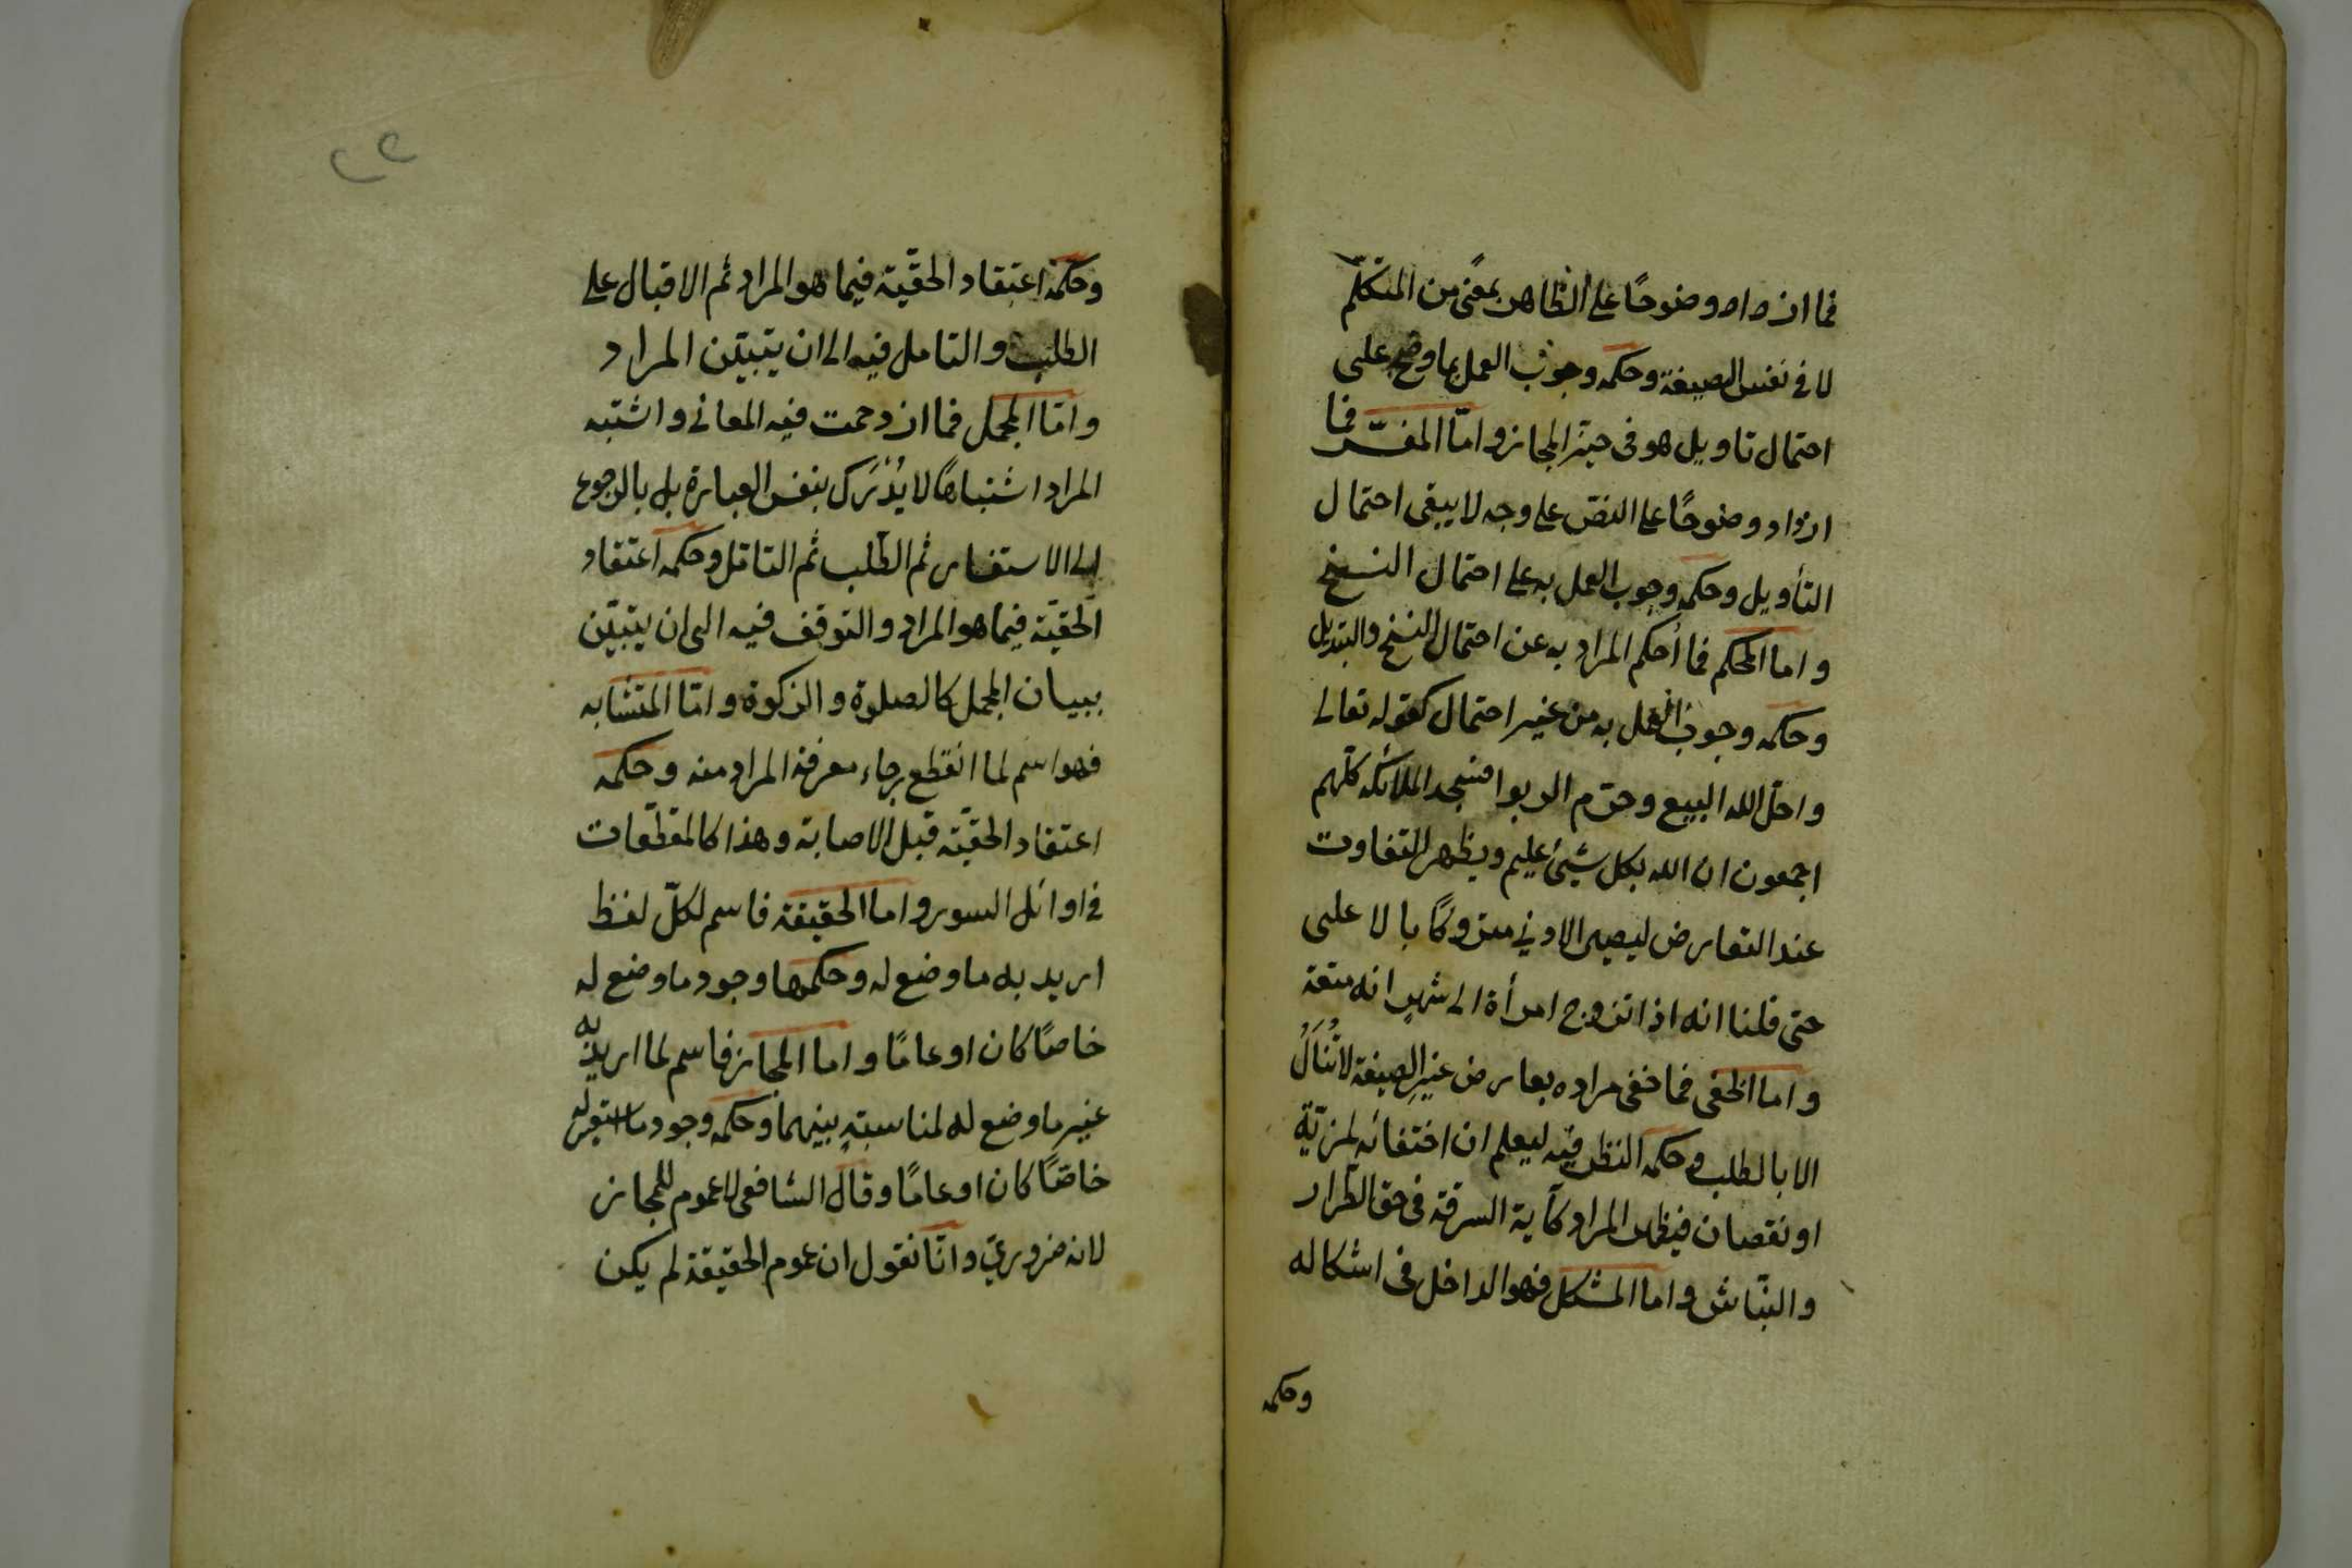 فما ازداد وضوحًا على الظاهر بمعنًى من المتكلّم
لا في نفس الصيغة وحكمه وجوب العمل بما وضح على
احتمال تاويل هو فى حيّز المجاز وامّا المفسّر فما
ازداد وضوحًا على النصّ على وجه لا يبقى احتمال
التأويل وحكمه وجوب العمل به على احتمال النسخ
واما المحكم فما أحكم المراد به عن احتمال النسخ والتبديل
وحكمه وجوب العمل به من غير احتمال كقوله تعالى
واحلّ الله البيع وحرّم الربوا فسجد الملائكه كلّهم
اجمعون ان الله بكل شيئ عليم ويظهر التفاوت
عند التعارض ليصير الادنى متروكًا بالاعلى
حتى قلنا انه اذا تزوج امرأة الى شهر انه متعة
واما الخفى فما خفى مراده بعارض غير الصيغة لا يُنَالُ
الا بالطلب وحكمه النظر فيه ليعلم ان اختفائه لمزيّة
او نقصان فيظهر المراد كآية السرقة فى حق الطرار
والنبّاش واما المشكل فهو الداخل فى اشكاله
وحكمه
وحكمه اعتقاد الحقّيّة فيما هو المراد ثم الاقبال على
الطلب والتامل فيه الى ان يتبيّن المراد
وامّا المجمل فما ازدحمت فيه المعانى واشتبه
المراد اشتباهًا لا يُدْرَك بنفس العبارة بل بالرجوع
الى الاستفسار ثم الطّلب ثم التامّل وحكمه اعتقاد
الحقّيّة فيما هو المراد والتوقف فيه الى ان يتبيّن
ببيان المجمل كالصلوة والزكوة وامّا المتشابه
فهو اسم لما انقطع رجاء معرفة المراد منه وحكمه
اعتقاد الحقّيّة قبل الاصابة وهذا كالمقطّعات
فى اوائل السور واما الحقيقة فاسم لكلّ لفظ
اريد به ما وضع له وحكمها وجود ما وضع له
خاصًا كان او عامًا واما المجاز فاسم لما اريد به
غير ما وضع له لمناسبةٍ بينهما وحكمه وجود ما استعير له
خاصًّا كان او عامًا وقال الشافعى لا عموم للمجاز
لانه ضروريّ وانّا نقول ان عموم الحقيقة لم يكن